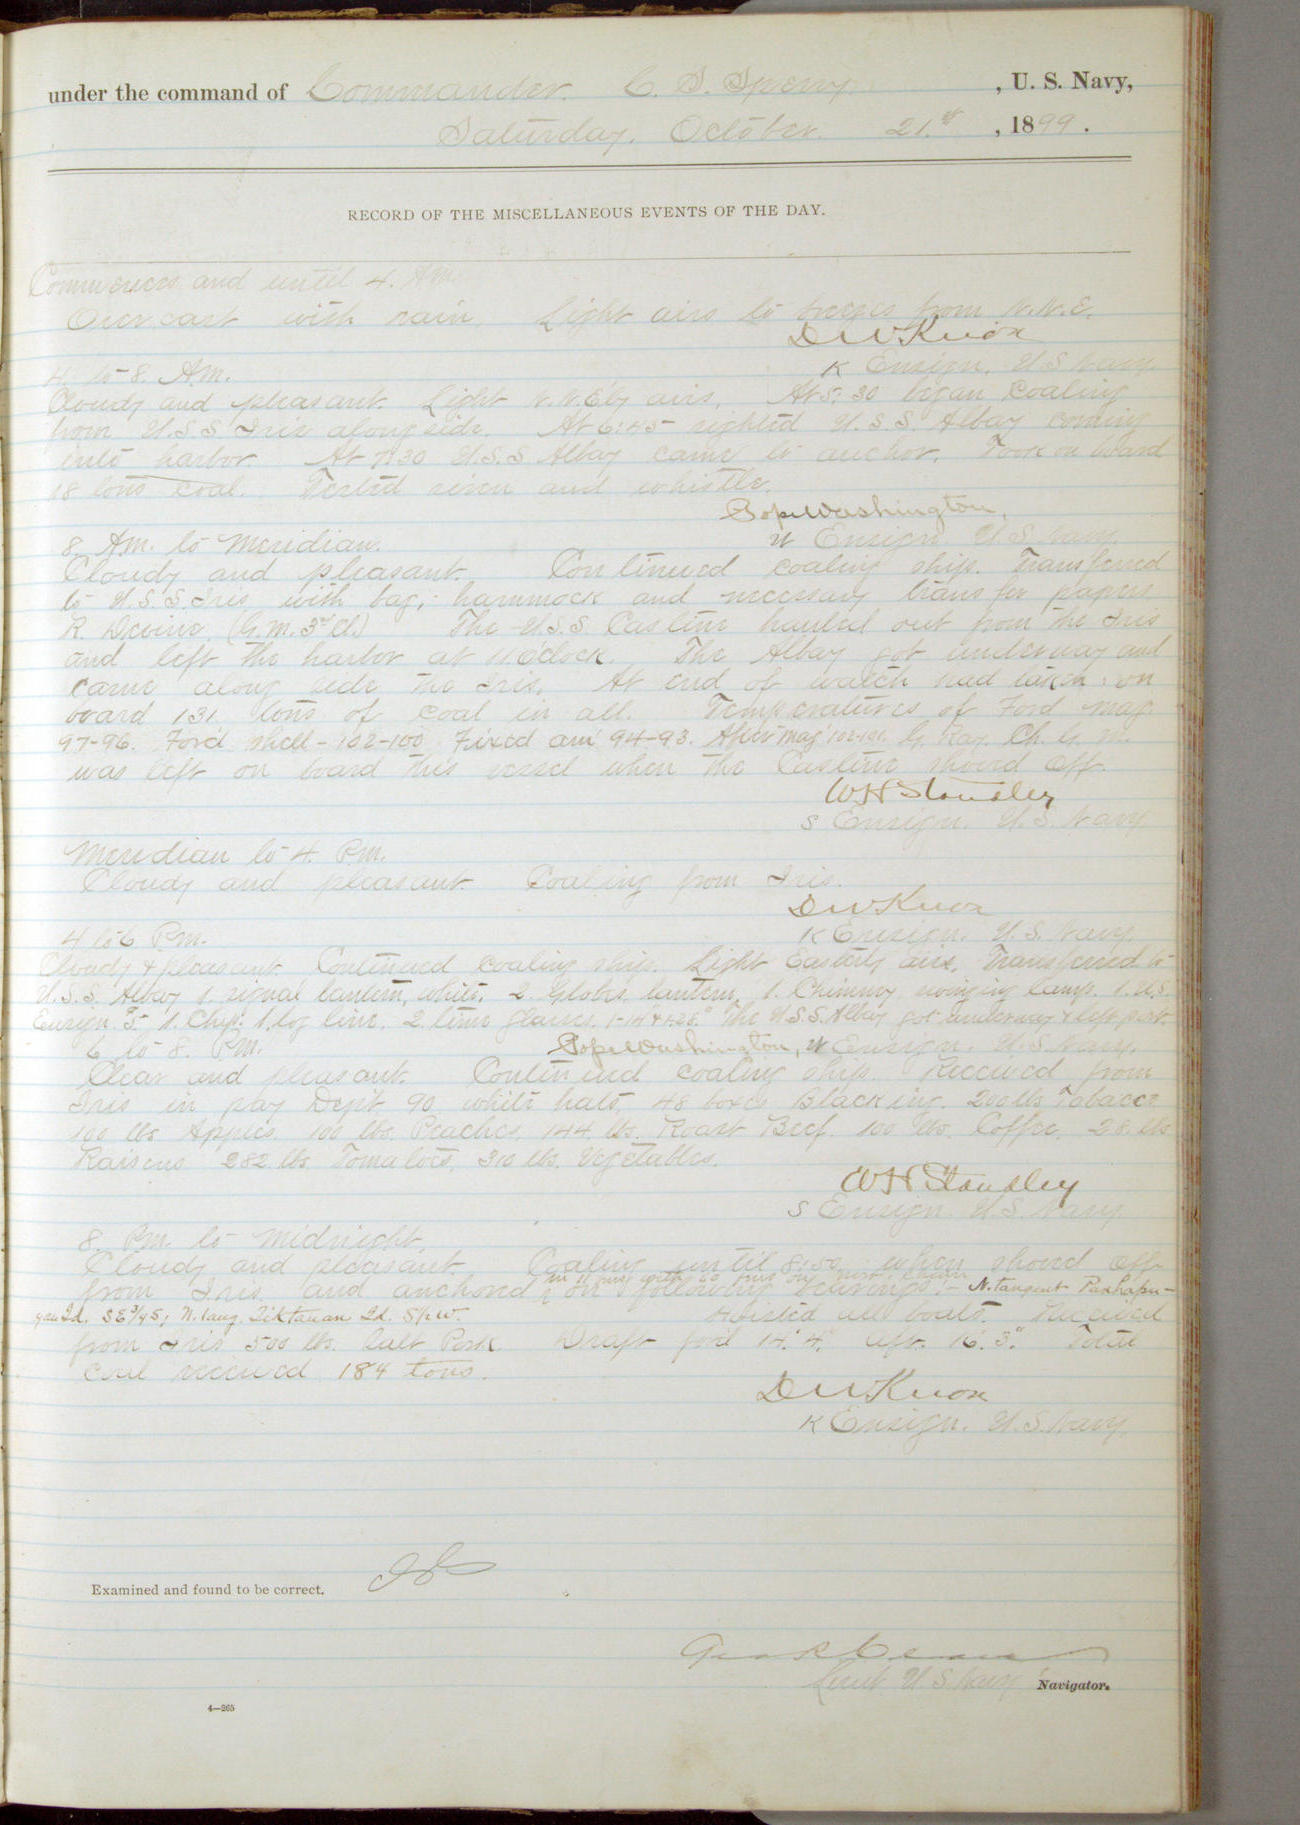 under the command of Commander. C. S. Sperry , U. S. Navy,
Saturday. October. 21.st , 1899.
RECORD OF THE MISCELLANEOUS EVENTS OF THE DAY.
Commences and until 4. A.M.
Overcast with rain. Light airs to breezes from N.N.E.
D W Knox
K Ensign. U S Navy.
4. to 8. A.m.
Cloudy and pleasant. Light N.N.E'ly airs. At 5:30 began coaling
from U.S.S. Iris alongside. At 6:45 sighted U.S.S. Albay coming
into harbor. At 7:30 U.S.S Albay came to anchor. Took on board
18 tons coal. Tested siren and whistle.
Pope Washington,
W Ensign U.S. Navy.
8. A.m. to Meridian.
Cloudy and pleasant. Continued coaling ship. Transferred
to U.S.S. Iris with bag, hammock and necessary transfer papers
R. Devine, (G.M. 3rd Cl.) The U.S.S. Castine hauled out from the Iris
and left the harbor at 11 o'clock. The Albay got underway and
came along side the Iris. At end of watch had taken on
board 131 tons of coal in all. Temperatures of Ford mag.
97-96. Ford shell - 102-100 Fixed am 94-93. After mag 102-101. G. Ray. Ch. G. M.
was left on board this vessel when the Castine shoved off.
W H Standley
S Ensign. U.S. Navy
Meridian to 4. P.m.
Cloudy and pleasant. Coaling from Iris.
D W Knox
K Ensign. U.S. Navy.
4 to 6 P.m.
Cloudy & pleasant. Continued coaling ship. Light Easterly airs. Transferred to
U.S.S. Albay 1. signal lantern, white. 2. Globes lantern. 1. Chimney swinging lamp. 1. U.S.
Ensign #5- 1. Chip. 1. log line. 2. time glasses. 1-14 & 1-28s The U.S.S. Albay got underway & left port.
6 to 8. P.m. Pope Washington, W Ensign. U.S. Navy.
Clear and pleasant. Continued coaling ship. Received from
Iris in pay Dept. 90 white hats, 48 boxes Blacking. 200 lbs Tobacco
100 lbs Apples. 100 lbs. Peaches. 144 lbs. Roast Beef. 100 lbs. Coffee. 28. lbs
Raisens 282 lbs Tomatoes. 310 lbs. Vegetables.
W H Standley
S Ensign U.S. Navy.
8. P.m. to Midnight.
Cloudy and pleasant. Coaling until 8:50 when shoved off
in 11 fms with 60 fms on chain
from Iris and anchored on following bearings:- N. tangent Panhapu-
yan Id. SE 3/4 S; N. tang. Tiktauan Id. S/W. Hoisted all boats. Received
from Iris 500 lbs. salt Pork Draft for'd 14' 4" aft. 16' 3". Total
coal received 184 tons.
D W Knox
K Ensign. U.S. Navy.
Examined and found to be correct.
Lieut U S Navy Navigator.
4—265